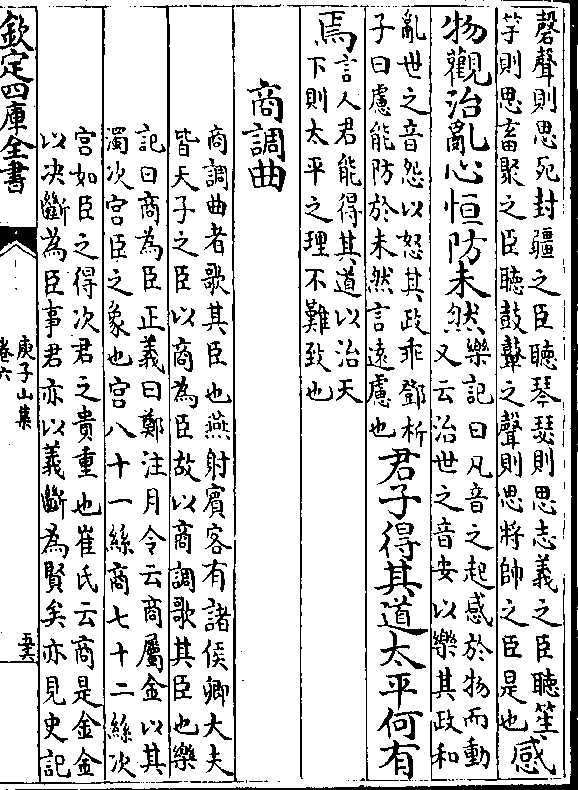 磬聲則思死封疆之臣聽琴瑟則思志義之臣聽笙
竽則思畜聚之臣聽鼓鼙之聲則思將帥之臣是也感
物觀治亂心恒防未然樂記曰凡音之起感於物而動
又云治世之音安以樂其政和
亂世之音怨以怒其政乖鄧析
子曰慮能防於未然言遠慮也君子得其道太平何有
焉言人君能得其道以治天
下則太平之理不難致也
商調曲
商調曲者歌其臣也燕射賓客有諸侯卿大夫
皆天子之臣以商為臣故以商調歌其臣也樂
記曰商為臣正義曰鄭注月令云商屬金以其
濁次宫臣之象也宫八十一絲商七十二絲次
宫如臣之得次君之貴重也崔氏云商是金金
以决斷為臣事君亦以義斷為賢矣亦見史記
欽定四庫全書
庾子山集
卷六